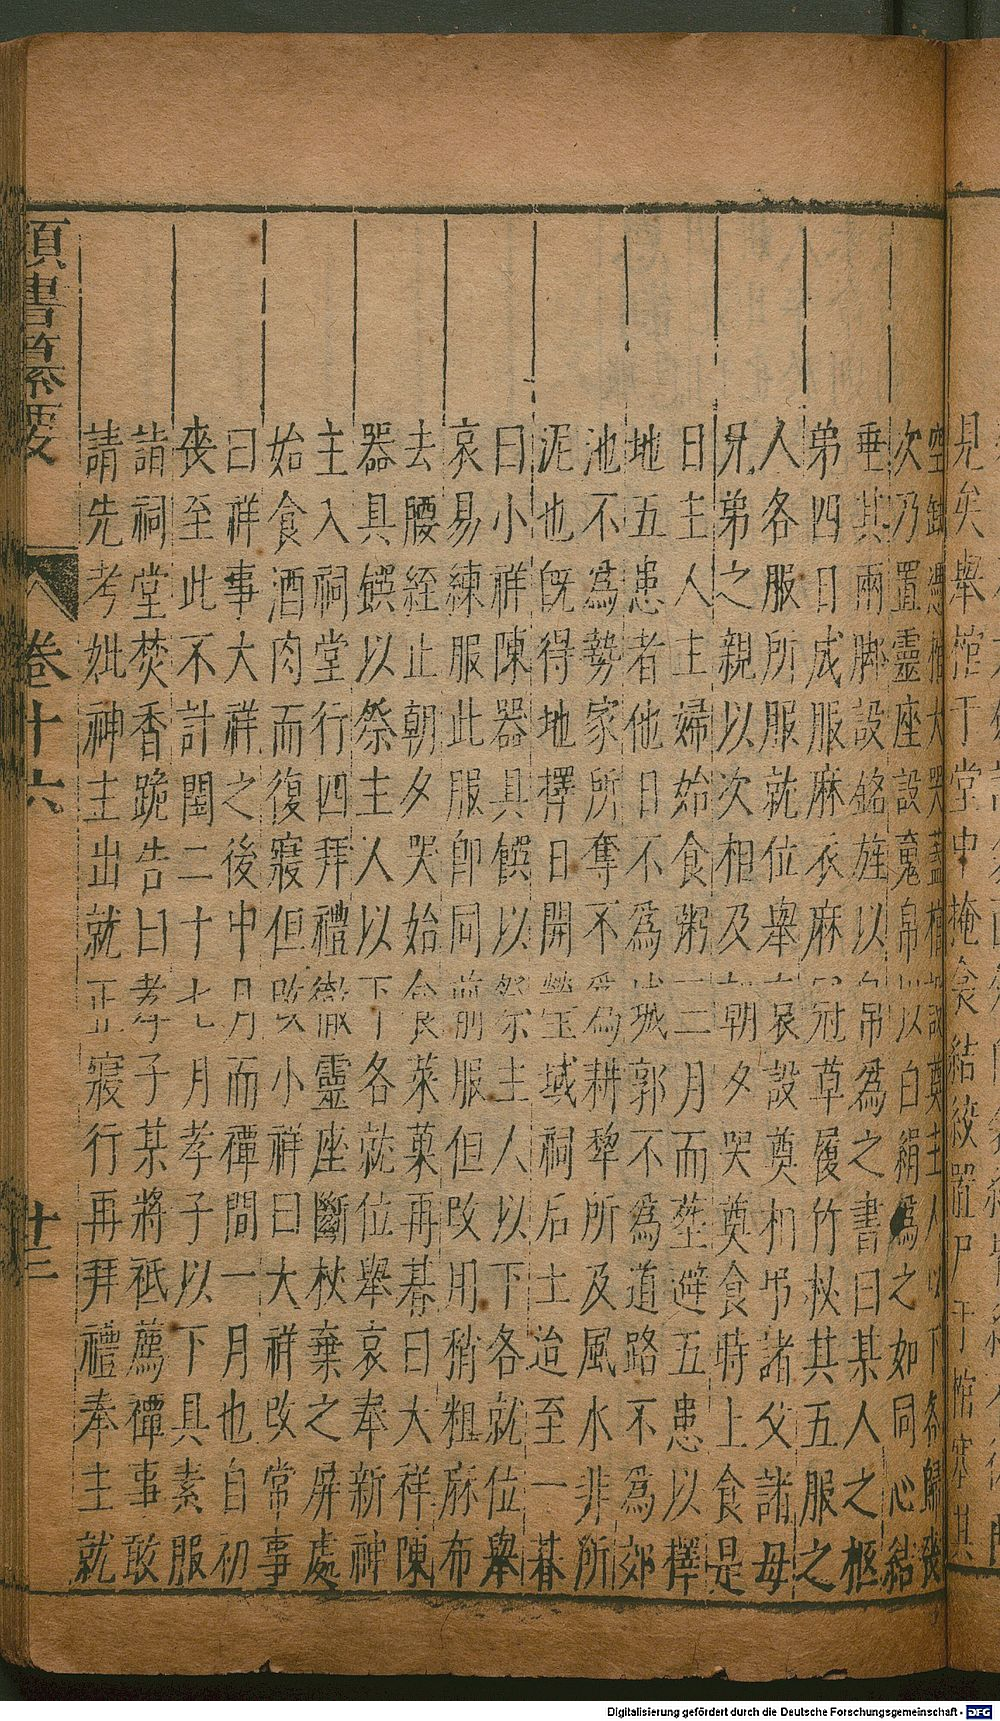 見矣舉棺于堂中掩衾結絞置尸于棺塞其
空缺憑棺大哭蓋棺設奠主人以下各歸喪
次乃置靈座設䰟帛以白絹爲之如同心結
垂其兩脚設銘旌以帛爲之書曰某人之柩
第四日成服麻衣麻冠草履竹杖其五服之
人各服所服就位舉哀設奠相弔諸父諸母
兄弟之親以次相及朝夕哭奠食時上食是
日主人主婦始食粥三月而塟避五患以擇
地五患者他日不爲城郭不爲道路不爲郊
池不爲勢家所奪不爲耕犂所及風水非所
泥也旣得地擇日開塋域祠后土迨至一朞
曰小祥陳器具饌以祭主人以下各就位舉
哀易練服此服卽同前服但改用稍粗麻布
去腰絰止朝夕哭始食菜菓再朞曰大祥陳
器具饌以祭主人以下各就位舉哀奉新神
主入祠堂行四拜禮徹靈座斷杖棄之屏處
始食酒肉而復寢但改小祥曰大祥改常事
曰祥事大祥之後中月而禫間一月也自初
喪至此不計閏二十七月孝子以下具素服
詣祠堂焚香跪告曰孝子某將祗薦禫事敢
請先考妣神主出就正寢行再拜禮奉主就
類書纂要 卷十六 十三
Digitalisierung gefördert durch die Deutsche Forschungsgemeinschaft - DFG